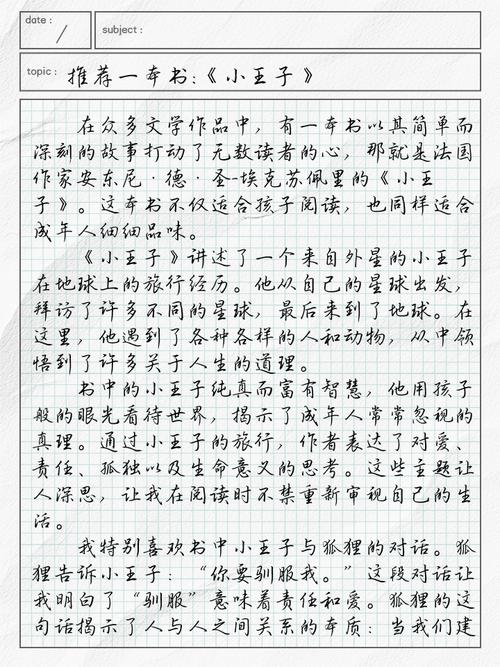 date :
subject :
topic : 推荐一本书:《小王子》
在众多文学作品中，有一本书以其简单而
深刻的故事打动了无数读者的心，那就是法国
作家安东尼·德·圣-埃克苏佩里的《小王
子》。这本书不仅适合孩子阅读，也同样适合
成年人细细品味。
《小王子》讲述了一个来自外星的小王子
在地球上的旅行经历。他从自己的星球出发，
拜访了许多不同的星球，最后来到了地球。在
这里，他遇到了各种各样的人和动物，从中领
悟到了许多关于人生的道理。
书中的小王子纯真而富有智慧，他用孩子
般的眼光看待世界，揭示了成年人常常忽视的
真理。通过小王子的旅行，作者表达了对爱、
责任、孤独以及生命意义的思考。这些主题让
人深思，让我在阅读时不禁重新审视自己的生
活。
我特别喜欢书中小王子与狐狸的对话。狐
狸告诉小王子：“你要驯服我。”这段对话让
我明白了“驯服”意味着责任和爱。狐狸的这
句话揭示了人与人之间关系的本质：当我们建